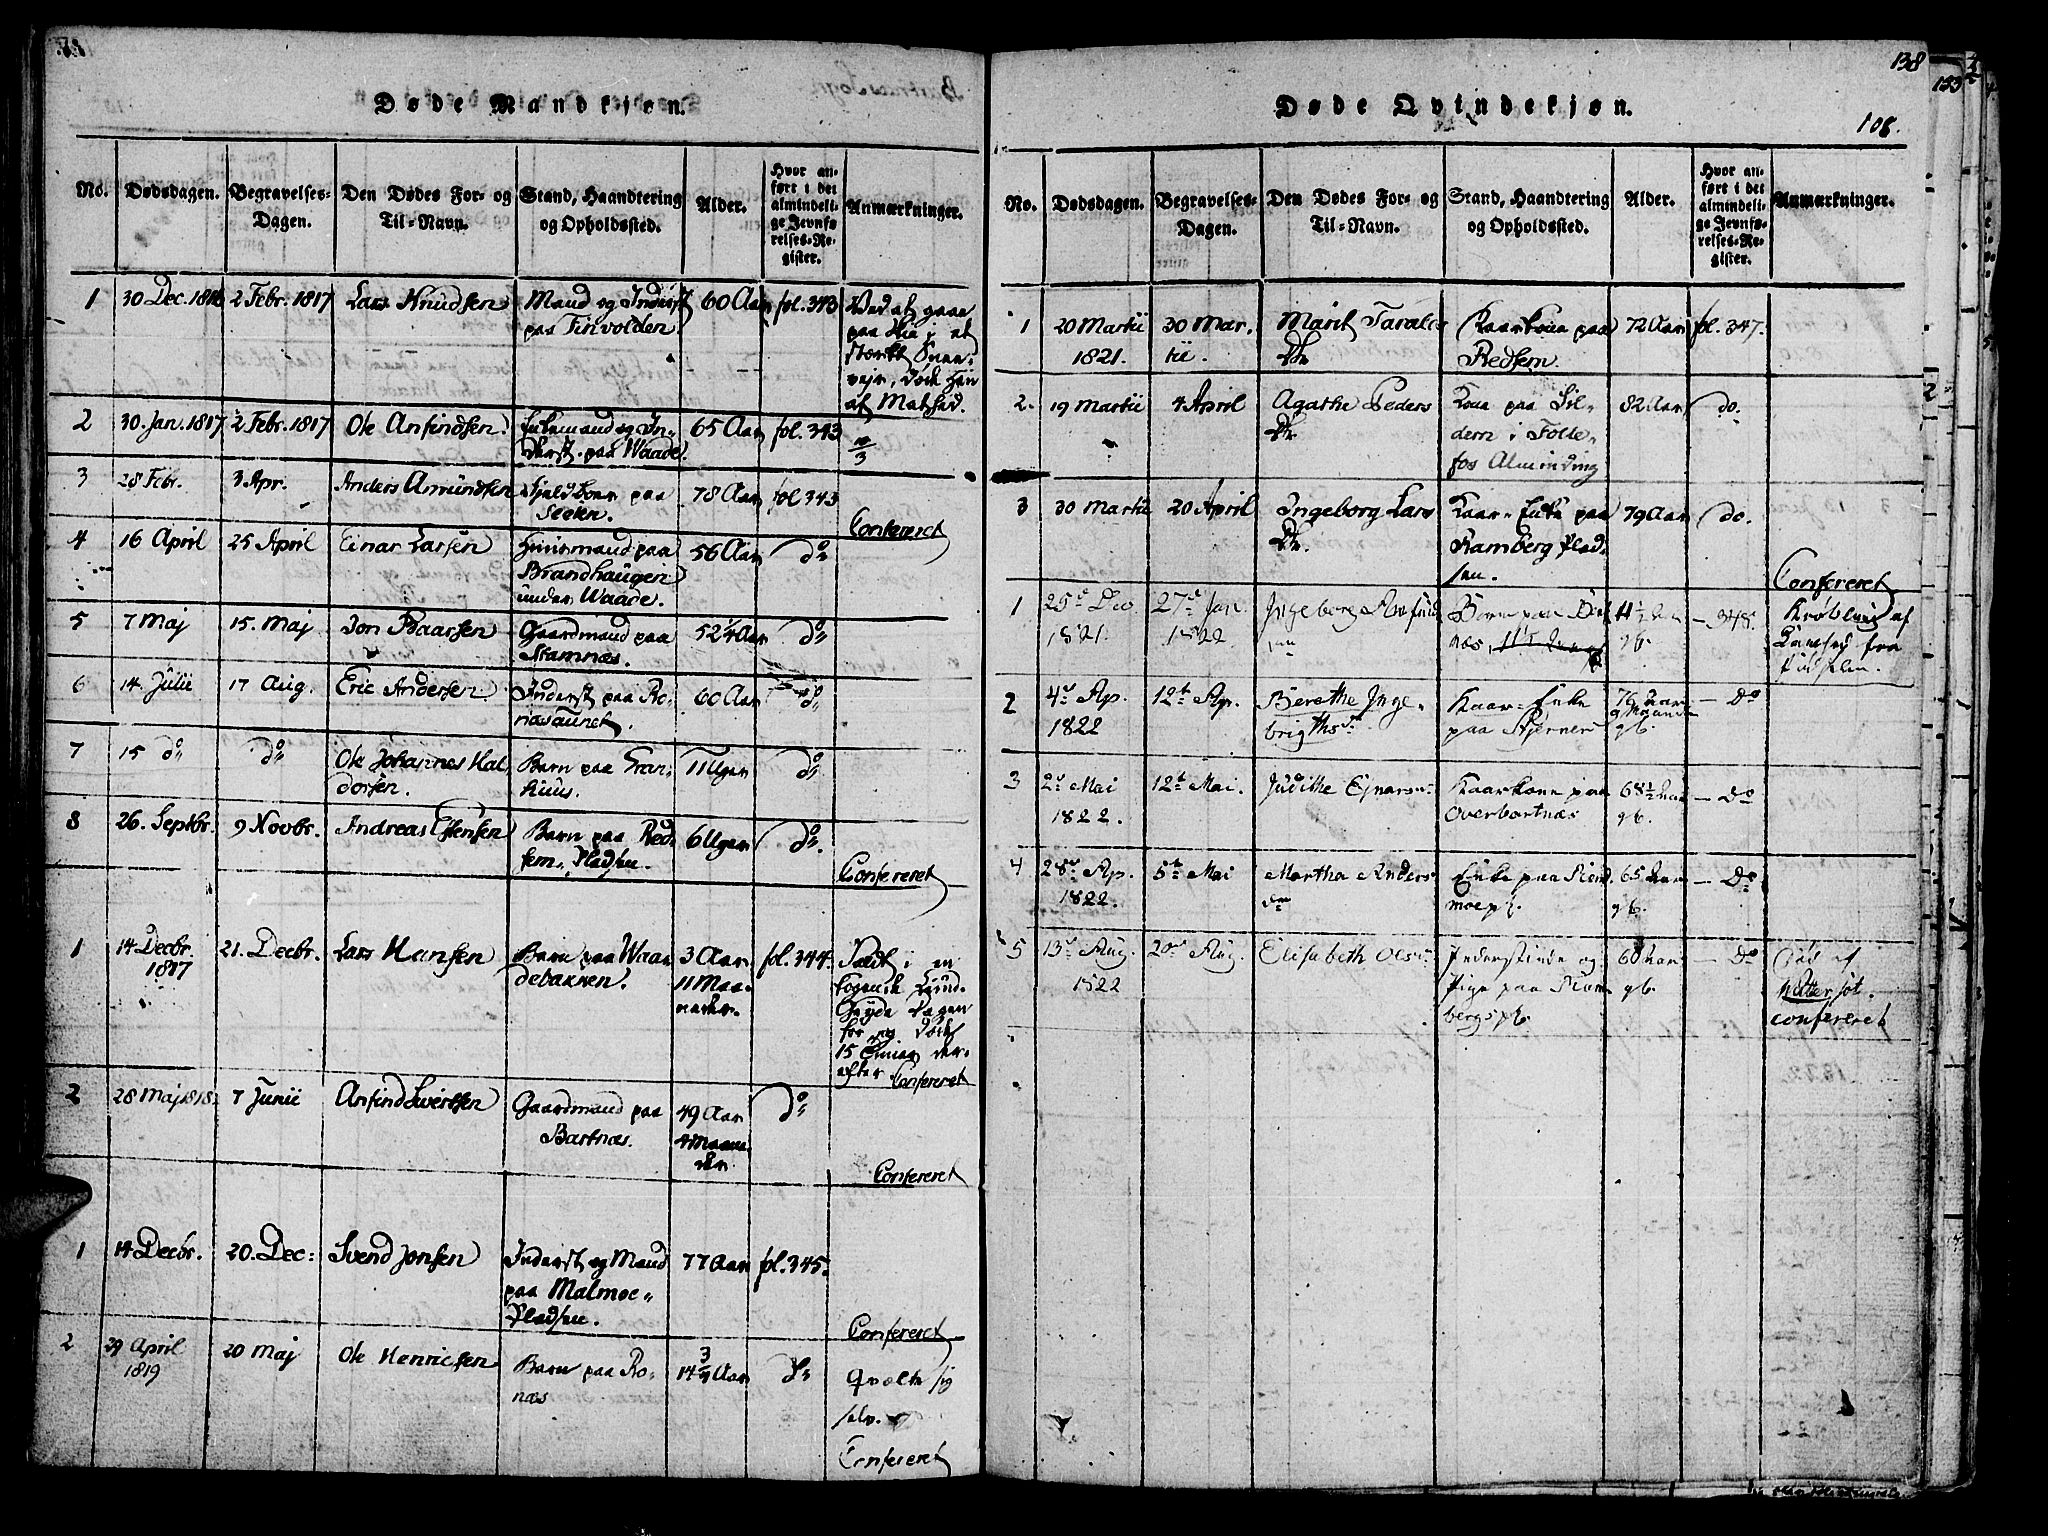 Døde Mandkjøn.
No. Dødsdagen. Begravelses-Dagen. Den Dødes For- og Til-Navn. Stand, Haandtering og Opholdssted. Alder. Hvor anført i det almindelige Jevnførelses-Register. Anmærkninger.
1 30 Dec. 1816 2 Febr. 1817 Lars Knudsen Mand og Inderst 60 Aar fol. 343
paa Finvolden
paa
Døde Han
2 30. Jan. 1817 2 Febr. 1817 Ole Anfindsen Enkemand og In- 65 Aar fol. 343
derst. paa Waade.
3 28 Febr. 3 Apr. Anders Amundsen paa 78 Aar fol 343
Confereret
4 16 April 25 April Einar Larsen Huusmand paa 56 Aar do
Brandhaugen
under Waade.
5 7 Maj 15. Maj Jon Baarsen Gaardmand paa 52 1/4 Aar do
Stamnæs.
6 14 Julii 17 Aug. Eric Andersen Inderst paa Ro- 60 Aar do
næsaunet.
7 15 do do Ole Johannes Hal- Barn paa Gran- 11 Uger do
dorsen. huus.
8 26. Septbr. 9 Novbr. Andreas Estensen Barn paa Red- 6 Uger do.
sem, Pladsen.
Confereret
1 14 Decbr. 21. Decbr. Lars Hansen Barn paa Waa- 3 Aar fol. 344. Faldt i en
1817 debakken. 11 Maa-
neder.
Dagen
for og Døde
15 Timer der-
efter. Confereret
2 28 Maj 1818. 7 Junii Anfind Siversen Gaardmand paa 49 Aar do
Bartnæs. 4 Maane-
der
Confereret
1 14 Decbr. 20. Dec: Svend Jonsen Inderst og Mand 77 Aar fol. 345.
paa Malmoe-
Pladsen.
Confereret
2 29 April 20 Maj Ole Henricsen Barn paa Ro- 14 3/4 Aar do Qvalte sig
1819 næs selv.
Confereret
138
133
Døde Qvindekjøn.
108.
No. Dødsdagen. Begravelses-Dagen. Den Dødes For- og Til-Navn. Stand, Haandtering og Opholdssted. Alder. Hvor anført i det almindelige Jevnførelses-Register. Anmærkninger.
1 20 Martii 30 Mar- Marit Tarals Kaarkone paa 72 Aar fol. 347.
1821. tii. Dr. Redsem.
2. 19 Martii 4 April Agathe Peders Kone paa Sil- 82 Aar do.
Dr. dem i Folle-
fos Alminding
3 30 Martii 20 April Ingeborg Lars Kaar-Enke paa 79 Aar do.
Dr. Ramberg Plad-
sen.
Confereret
1 25de Dec. 27de Jan. Ingeborg Barn paa Bart- 11 1/2 Aar - 348.
1821. 1822 næs, gl.
2 4de Ap. 12te Ap. Berethe Inge- Kaar-Enke 76 Aar - Do
1822 brigths. paa gl.
3 2de Mai 12te Mai. Judithe Ejnars. Kaarkone paa 68 1/2 Aar - Do
1822. Overbartnæs gl.
4 28de Ap. 5te Mai Martha Anders Enke paa 65 Aar - Do
1822. gl.
5 13de Aug. 20de Aug. Elisabeth Ols. Inderstinde og 60 Aar - Do Død af
1522 Pige paa Ram- gl.
bergspl. confereret